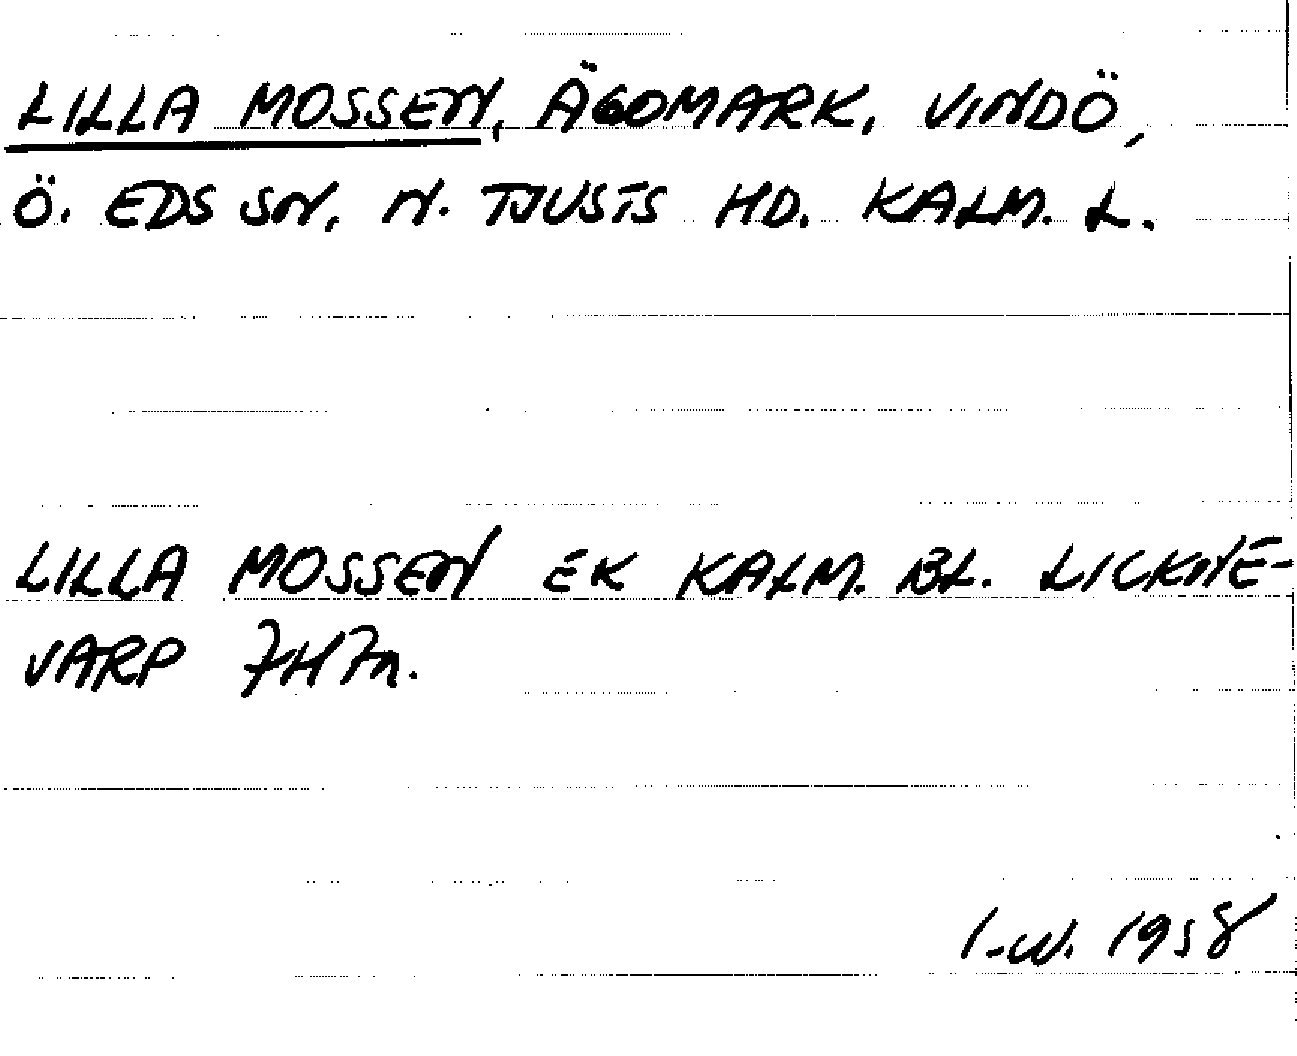 LILLA MOSSEN, ÄGOMARK, VINDÖ,
Ö. EDS SN, N. TJUSTS HD. KALM. L.
LILLA MOSSEN EK KALM. BL. LICKNE-
VARP 7H7n.
I-W. 1958